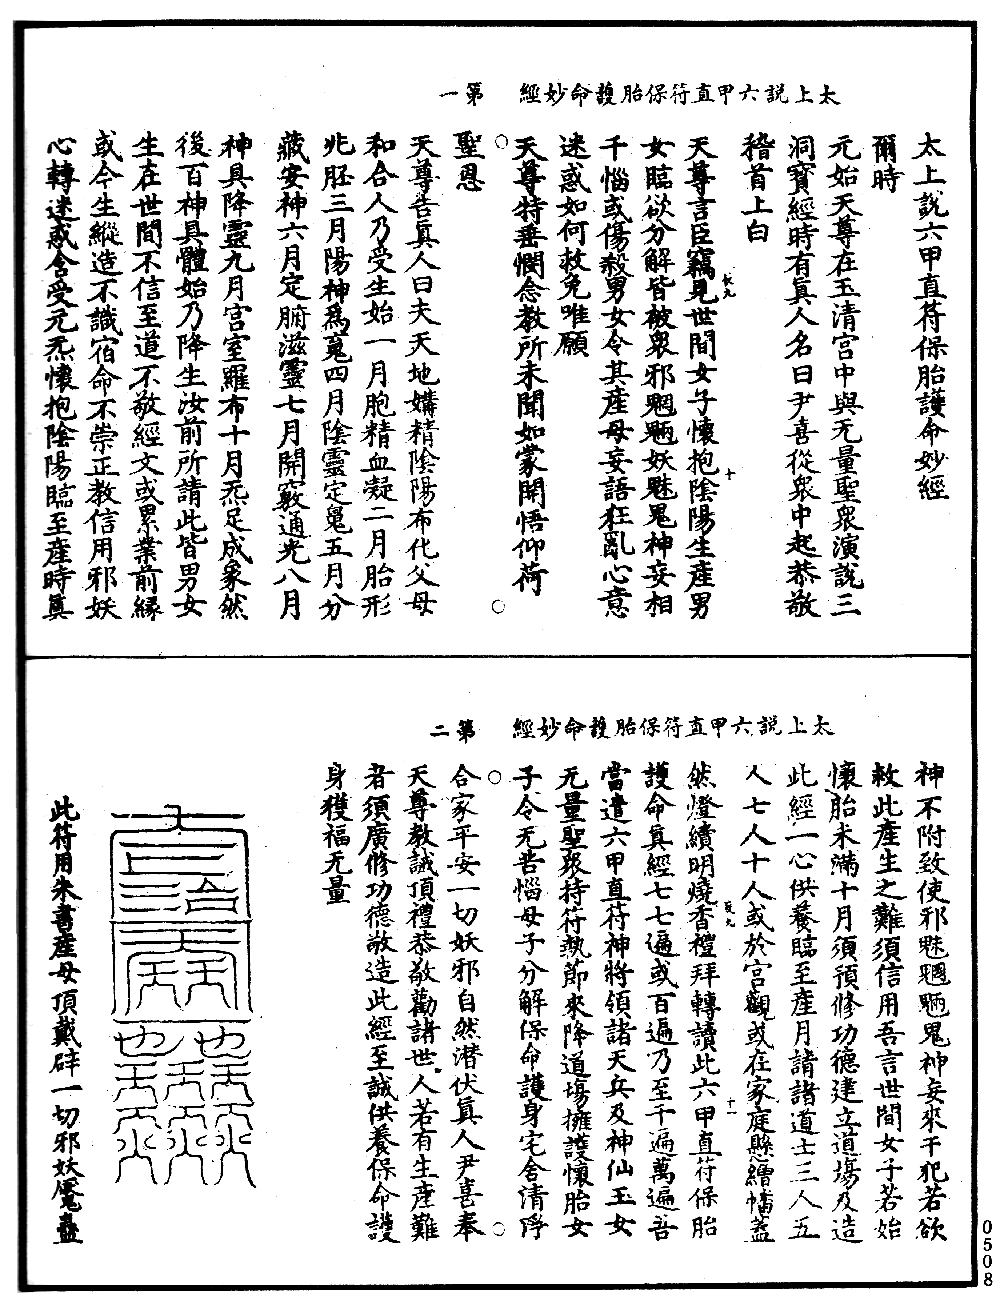 太上說六甲直符保胎護命妙經　第一
太上說六甲直符保胎護命妙經
爾時
元始天尊在玉清宮中與无量聖衆演說三
洞寶經時有眞人名曰尹喜從衆中起恭敬
稽首上白
天尊言臣竊見世間女子懷抱陰陽生產男
女臨欲分解皆被衆邪魍魎妖魅鬼神妄相
千惱或傷殺男女令其產母妄語狂亂心意
迷惑如何救免唯願
天尊特垂憫念教所未聞如蒙開悟仰荷
聖恩
天尊告眞人曰夫天地媾精陰陽布化父母
和合人乃受生始一月胞精血凝二月胎形
兆胚三月陽神爲䰟四月陰靈定魄五月分
藏安神六月定腑滋靈七月開竅通光八月
神具降靈九月宮室羅布十月炁足成象然
後百神具體始乃降生汝前所請此皆男女
生在世間不信至道不敬經文或累業前緣
或今生縱造不識宿命不崇正教信用邪妖
心轉迷惑含受元炁懷抱陰陽臨至產時眞
太上說六甲直符保胎護命妙經　第二
神不附致使邪魅魍魎鬼神妄來干犯若欲
救此產生之難須信用吾言世間女子若始
懷胎未滿十月須預修功德建立道場及造
此經一心供養臨至產月請諸道士三人五
人七人十人或於宮觀或在家庭懸繒幡蓋
然燈續明燒香禮拜轉讀此六甲直符保胎
護命眞經七七遍或百遍乃至千遍萬遍吾
當遣六甲直符神將領諸天兵及神仙玉女
无量聖衆持符執節來降道場擁護懷胎女
子令无苦惱母子分解保命護身宅舍清淨
合家平安一切妖邪自然潜伏眞人尹喜奉
天尊教誡頂禮恭敬勸諸世人若有生產難
者須廣修功德敬造此經至誠供養保命護
身獲福无量
此符用朱書產母頂戴辟一切邪妖魘蠱
0508